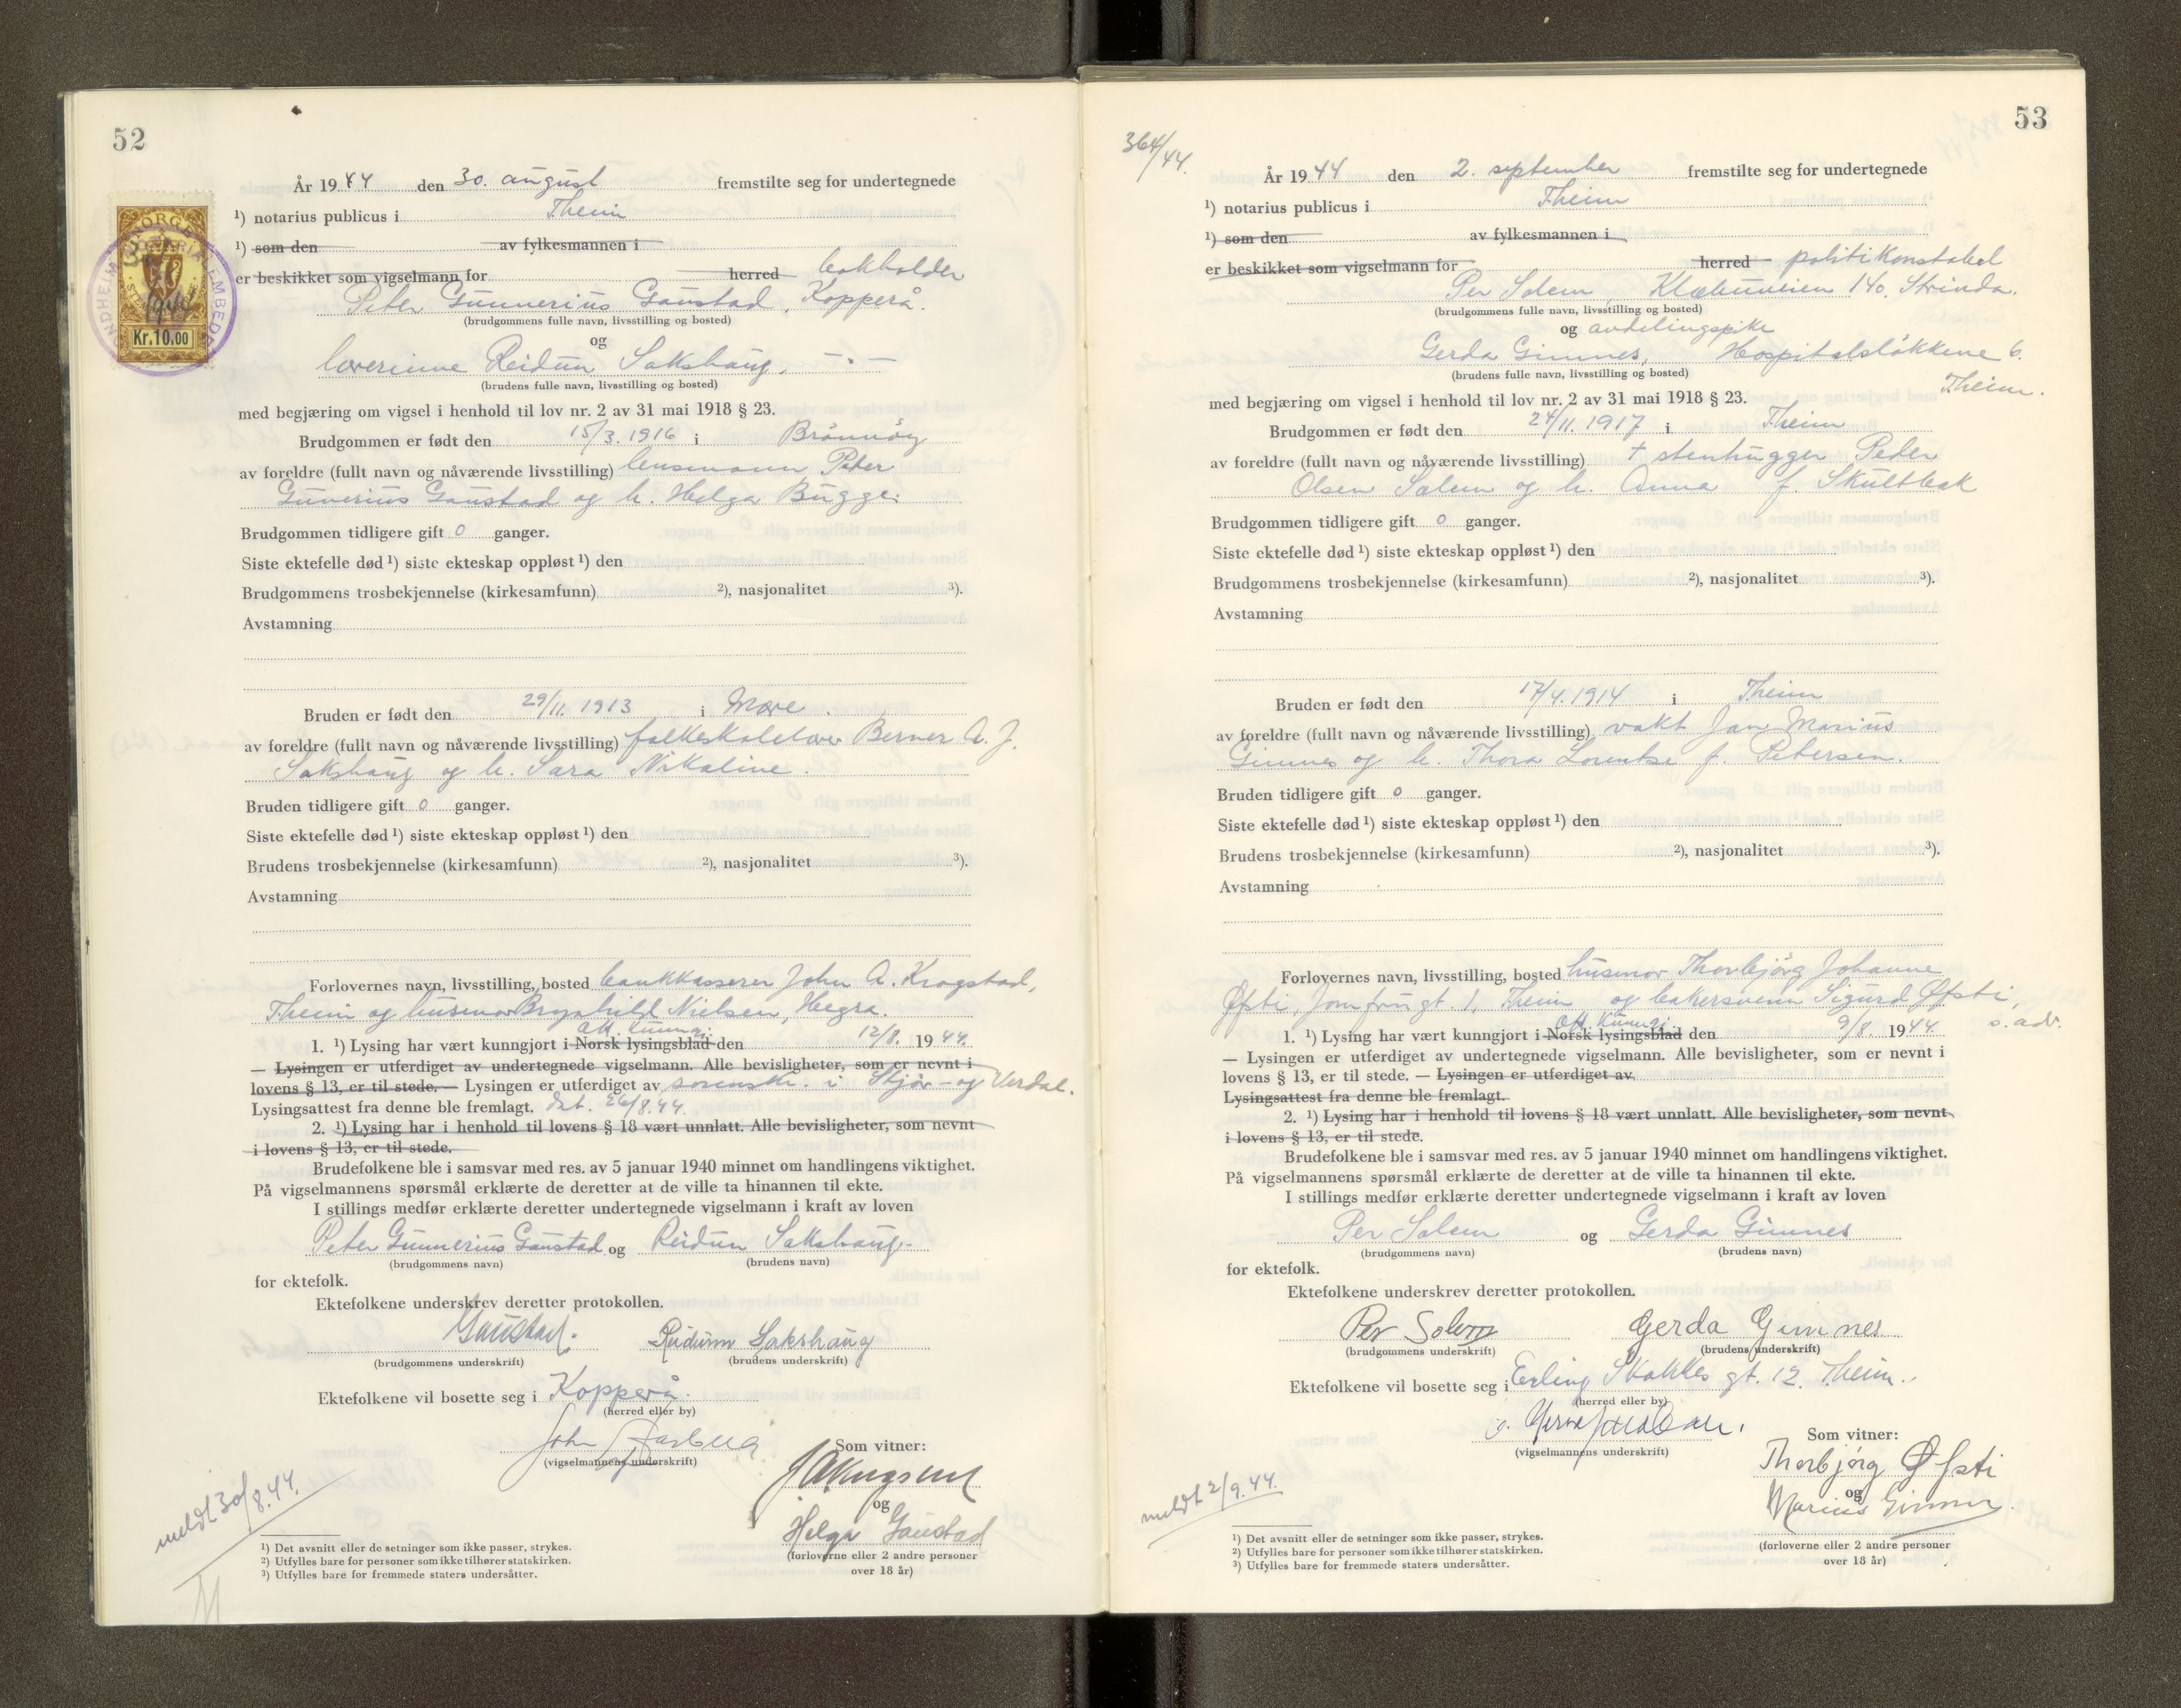 52
År 1944 den 30. august fremstilte seg for undertegnede
¹) notarius publicus i Theim
¹) som den av fylkesmannen i
er beskikket som vigselmann for herred bokholder
Peter Gunnerius Gaustad, Kopperå.
(brudgommens fulle navn, livsstilling og bosted)
og
lærerinne Reidun Sakshaug. — " —
(brudens fulle navn, livsstilling og bosted)
med begjæring om vigsel i henhold til lov nr. 2 av 31 mai 1918 § 23.
Brudgommen er født den 15/3. 1916 i Brønnøy
av foreldre (fullt navn og nåværende livsstilling) lensmann Peter
Gunerius Gaustad og h. Helga Bugge.
Brudgommen tidligere gift 0 ganger.
Siste ektefelle død ¹) siste ekteskap oppløst ¹) den
Brudgommens trosbekjennelse (kirkesamfunn) ²), nasjonalitet ³).
Avstamning
Bruden er født den 29/11. 1913 i Mære.
av foreldre (fullt navn og nåværende livsstilling) folkeskolelærer Berner A. J.
Sakshaug og h. Sara Nikaline.
Bruden tidligere gift 0 ganger.
Siste ektefelle død ¹) siste ekteskap oppløst ¹) den
Brudens trosbekjennelse (kirkesamfunn) ²), nasjonalitet ³).
Avstamning
Forlovernes navn, livsstilling, bosted bankkasserer John A. Krogstad,
Theim og husmor Brynhild Nielsen, Hegra.
off. kunngj.
1. ¹) Lysing har vært kunngjort i Norsk lysingsblad den 12/8. 1944.
— Lysingen er utferdiget av undertegnede vigselmann. Alle bevisligheter, som er nevnt i
lovens § 13, er til stede. — Lysingen er utferdiget av sorenskr. i Stjør- og Verdal.
Lysingsattest fra denne ble fremlagt. dat. 26/8.44.
2. ¹) Lysing har i henhold til lovens § 18 vært unnlatt. Alle bevisligheter, som nevnt
i lovens § 13, er til stede.
Brudefolkene ble i samsvar med res. av 5 januar 1940 minnet om handlingens viktighet.
På vigselmannens spørsmål erklærte de deretter at de ville ta hinannen til ekte.
I stillings medfør erklærte deretter undertegnede vigselmann i kraft av loven
Peter Gunnerius Gaustad og Reidun Sakshaug.
(brudgommens navn) (brudens navn)
for ektefolk.
Ektefolkene underskrev deretter protokollen.
Gaustad. Reidunn Sakshaug
(brudgommens underskrift) (brudens underskrift)
Ektefolkene vil bosette seg i Kopperå.
(herred eller by)
John
(vigselmannens underskrift)
Som vitner:
og
Helga Gaustad
(forloverne eller 2 andre personer
over 18 år)
meldt 30/8.44.
¹) Det avsnitt eller de setninger som ikke passer, strykes.
²) Utfylles bare for personer som ikke tilhører statskirken.
³) Utfylles bare for fremmede staters undersåtter.
NORGE
Kr. 10.00
53
364/44.
År 1944 den 2. september fremstilte seg for undertegnede
¹) notarius publicus i Theim
¹) som den av fylkesmannen i
er beskikket som vigselmann for herred politikonstabel
Per Solem, Klæbuveien 140. Strinda.
(brudgommens fulle navn, livsstilling og bosted)
og avdelingspike
Gerda Gimnes, Hospitalsløkkene 6.
(brudens fulle navn, livsstilling og bosted) Theim.
med begjæring om vigsel i henhold til lov nr. 2 av 31 mai 1918 § 23.
Brudgommen er født den 24/11. 1917 i Theim
av foreldre (fullt navn og nåværende livsstilling) † stenhugger Peder
Olsen Solem og h. Anna f. Skultbak
Brudgommen tidligere gift 0 ganger.
Siste ektefelle død ¹) siste ekteskap oppløst ¹) den
Brudgommens trosbekjennelse (kirkesamfunn) ²), nasjonalitet ³).
Avstamning
Bruden er født den 17/4. 1914 i Theim
av foreldre (fullt navn og nåværende livsstilling) vakt Jan Marius
Gimnes og h. Thora Lorentse f. Petersen.
Bruden tidligere gift 0 ganger.
Siste ektefelle død ¹) siste ekteskap oppløst ¹) den
Brudens trosbekjennelse (kirkesamfunn) ²), nasjonalitet ³).
Avstamning
Forlovernes navn, livsstilling, bosted husmor Thorbjörg Johanne
Øfsti, Jomfrugt. 1, Theim og bakersvenn Sigurd Øfsti,
s. adr.
off. kunngj.
1. ¹) Lysing har vært kunngjort i Norsk lysingsblad den 9/8. 1944.
— Lysingen er utferdiget av undertegnede vigselmann. Alle bevisligheter, som er nevnt i
lovens § 13, er til stede. — Lysingen er utferdiget av
Lysingsattest fra denne ble fremlagt.
2. ¹) Lysing har i henhold til lovens § 18 vært unnlatt. Alle bevisligheter, som nevnt
i lovens § 13, er til stede.
Brudefolkene ble i samsvar med res. av 5 januar 1940 minnet om handlingens viktighet.
På vigselmannens spørsmål erklærte de deretter at de ville ta hinannen til ekte.
I stillings medfør erklærte deretter undertegnede vigselmann i kraft av loven
Per Solem og Gerda Gimnes
(brudgommens navn) (brudens navn)
for ektefolk.
Ektefolkene underskrev deretter protokollen.
Per Solem Gerda Gimnes
(brudgommens underskrift) (brudens underskrift)
Ektefolkene vil bosette seg i Erling Skakkes gt. 12. Theim.
(herred eller by)
(vigselmannens underskrift)
Som vitner:
Thorbjörg Øfsti
og
Marius Gimnes.
(forloverne eller 2 andre personer
over 18 år)
meldt 2/9.44.
¹) Det avsnitt eller de setninger som ikke passer, strykes.
²) Utfylles bare for personer som ikke tilhører statskirken.
³) Utfylles bare for fremmede staters undersåtter.